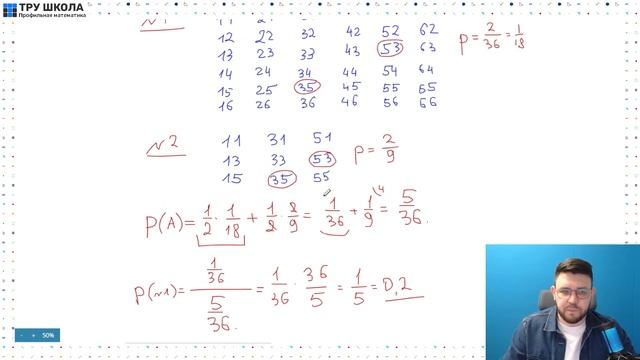 ТРУ ШКОЛА
Профильная математика
12 22 32 42 52 62
13 23 33 43 53 63
14 24 34 44 54 64
15 25 35 45 55 65
16 26 36 46 56 66
p = 2/36 = 1/18
№2
11 31 51
13 33 53
15 35 55
p = 2/9
P(A) = 1/2 · 1/18 + 1/2 · 2/9 = 1/36 + 1/9 \4 = 5/36.
P(№1) = 1/36 / 5/36. = 1/36 · 36/5 = 1/5 = 0,2
- + 50%